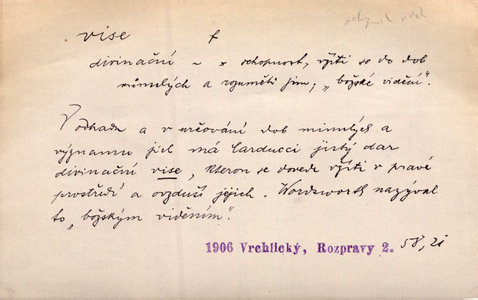 vise f
divinační ~ schopnost, vžíti se do dob
minulých a rozuměti jim; „božské vidění“.
V odhadu a v určování dob minulých a
významu jich má Carducci jistý dar
divinační vise, kterou se dovede vžíti v pravé
prostředí a ovzduší jejich. Wordsworth nazýval
to „božským viděním“.
1906 Vrchlický, Rozpravy 2. 58, 21